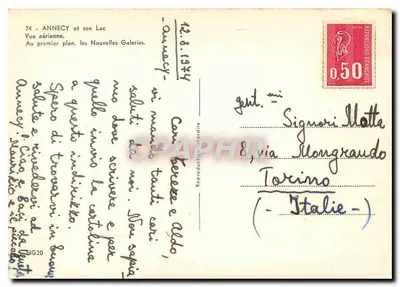 74 - ANNECY et son Lac
Vue aérienne.
Au premier plan, les Nouvelles Galeries.
12.8.1974
-Annecy-
Cari Tereze e Aldo,
vi mando tanti cari
saluti da noi. Non sapia
mo dove scrivere e per
quello invio la cartolina
a questo indirikko.
Spero di trovarvi in buona
salute e rivederci ad
Annecy! Ciao e Baci da
Maurikio e il piccolo
REPUBLIQUE FRANCAISE
0,50
Gent.mi
Signori Matta
8, via Mongrando
Torino
(- Italie -)